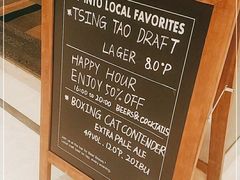 INTO LOCAL FAVORITES
*TSING TAO DRAFT
LAGER 8.0°P
HAPPY HOUR
ENJOY 50% OFF
16:00 to 20:00 BEERS & COCKTAILS
*BOXING CAT CONTENDER
EXTRA PALE ALE
4%VOL. 12.0°P. 20IBU